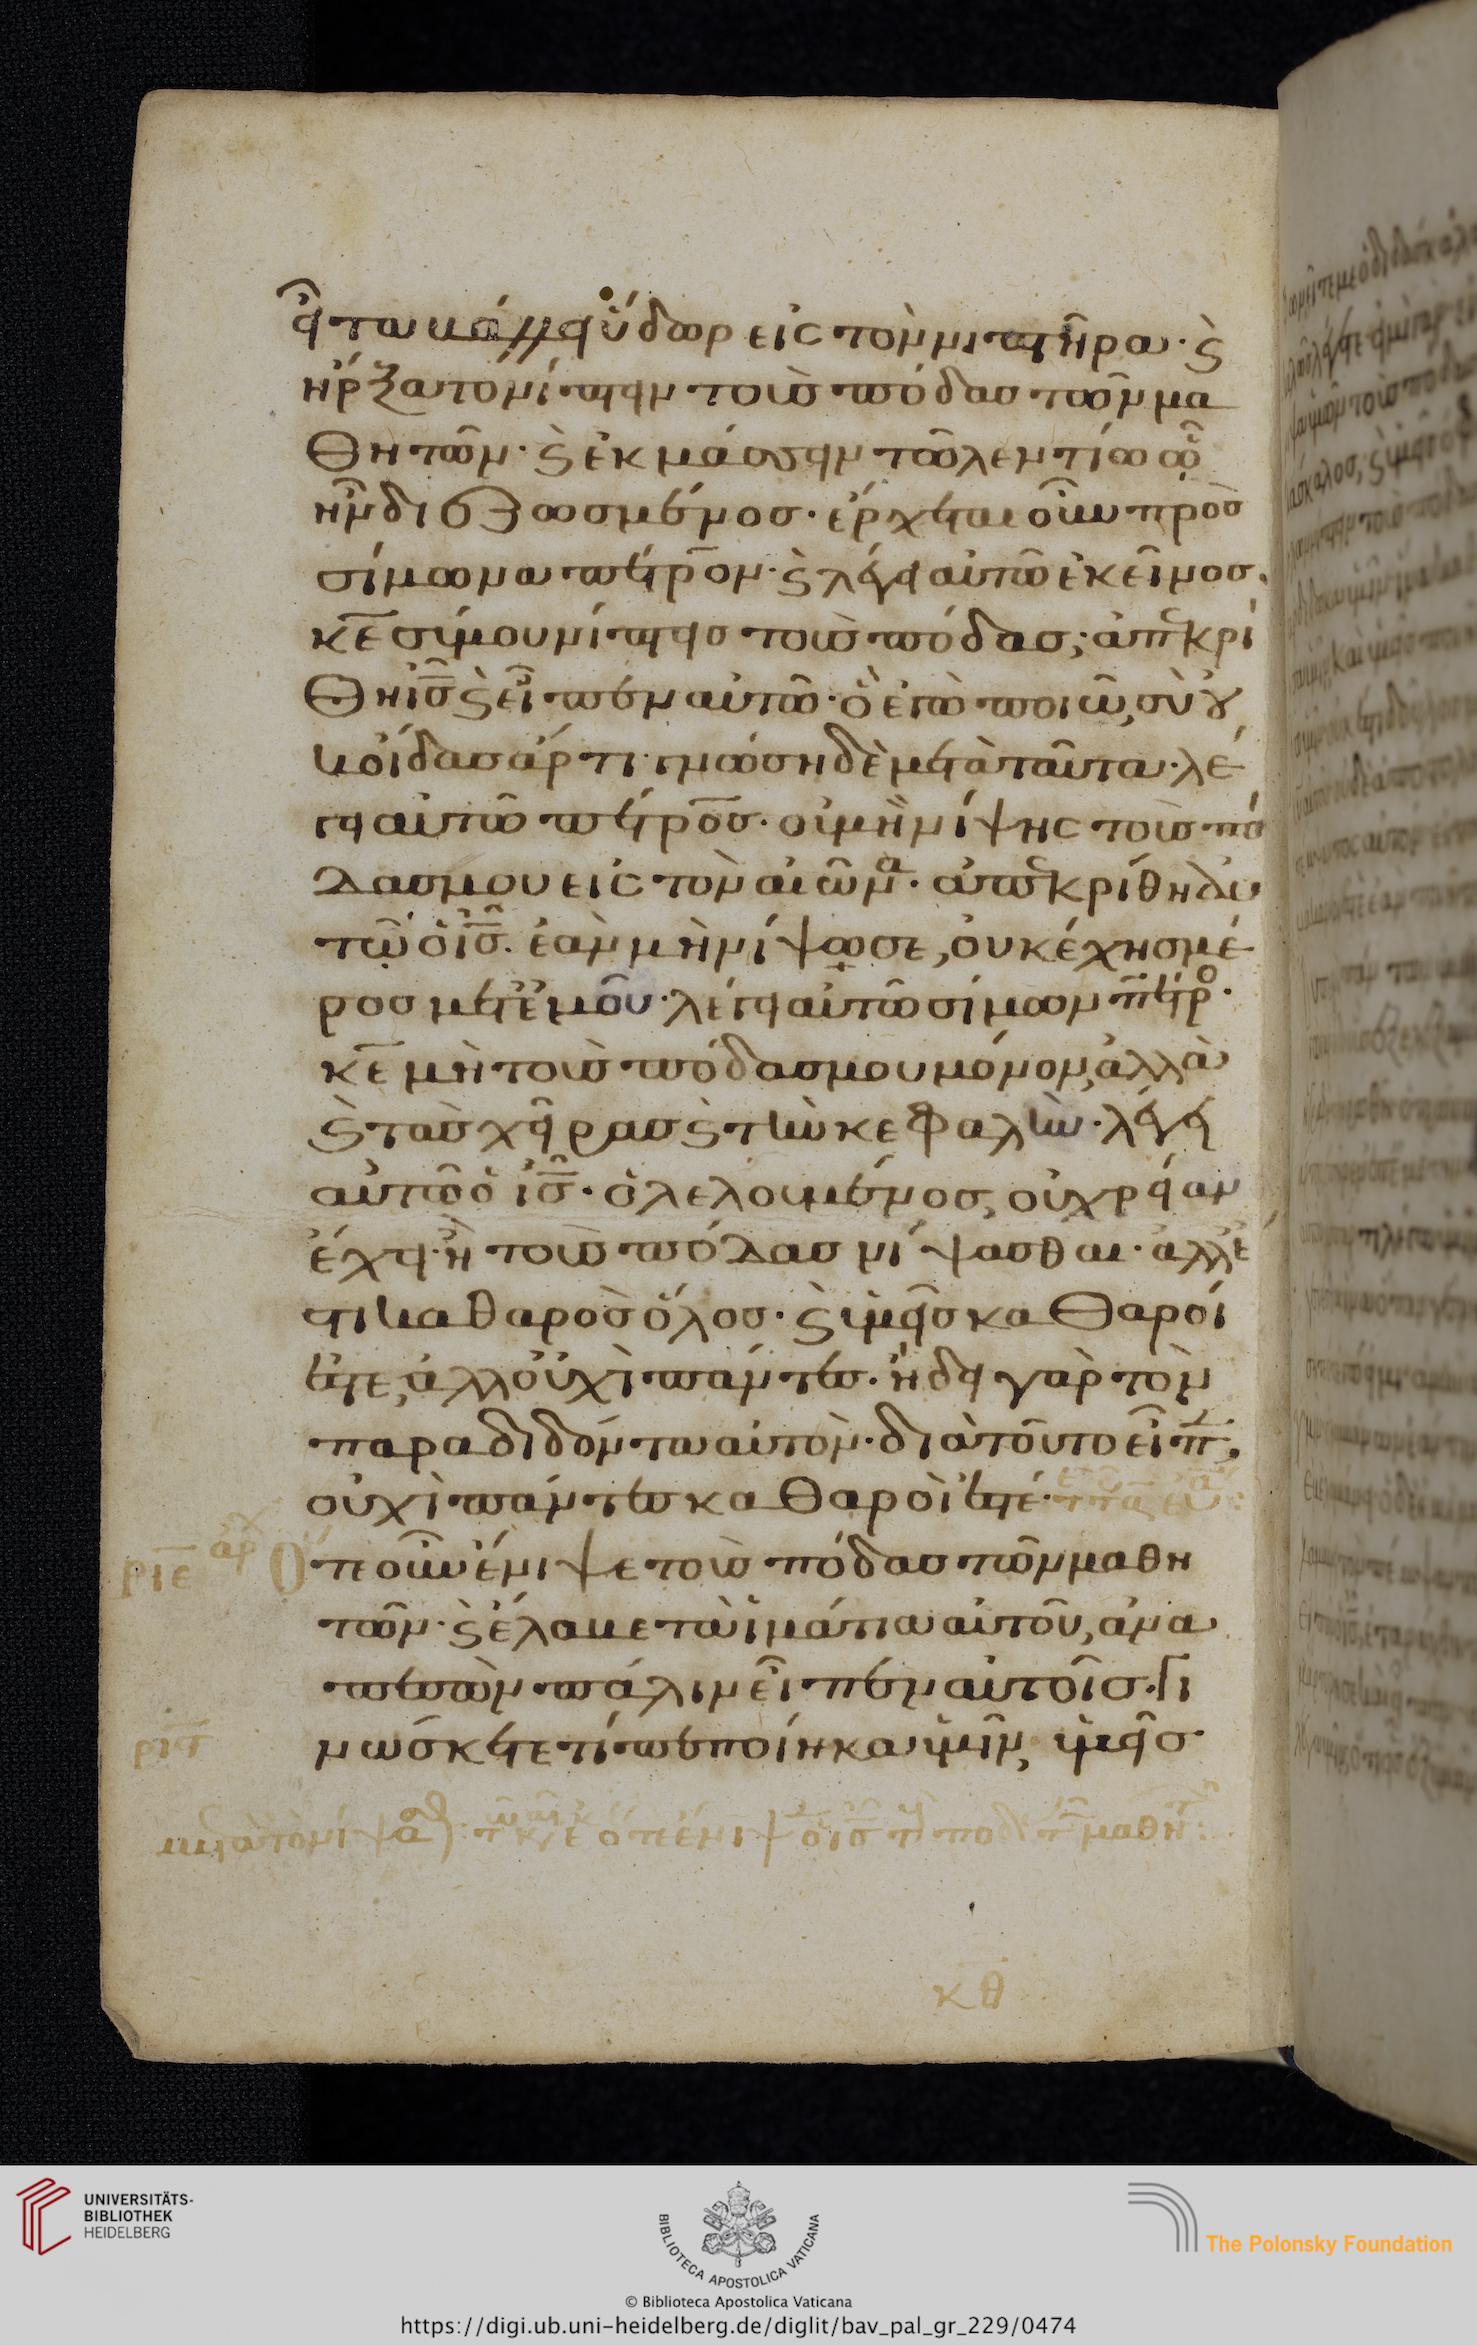 εἶτα βάλλει ὕδωρ εἰς τὸν νιπτῆρα· καὶ
ἤρξατο νίπτειν τοὺς πόδας τῶν μα
θητῶν· καὶ ἐκμάσσειν τῶ λεντίω ᾧ
ἦν διεζωσμένος· ἔρχεται οὖν πρὸς
σίμωνα πέτρον· καὶ λέγει αὐτῶ ἐκεῖνος·
κε σύ μου νίπτεις τοὺς πόδας; ἀπεκρί
θη ις καὶ εἶπεν αὐτῶ· ὃ ἐγὼ ποιῶ, σὺ οὐ
κ οἶδας ἄρτι· γνώση δὲ μετὰ ταῦτα· λέ
γει αὐτῶ πέτρος· οὐ μὴ νίψης τοὺς πό
δας μου εἰς τὸν αἰῶνα· ἀπεκρίθη αὐ
τῷ ὁ ις· ἐὰν μὴ νίψω σε, οὐκ ἔχης μέ
ρος μετ' ἐμοῦ· λέγει αὐτῶ σίμων πέτρο·
κε μὴ τοὺς πόδας μου μόνον, ἀλλὰ
καὶ τὰς χεῖρας καὶ τὴν κεφαλὴν· λέγει
αὐτῶ ὁ ις· ὁ λελουμένος, οὐ χρείαν
ἔχει· ἢ τοὺς πόδας νίψασθαι· ἀλλ' ἔ
στι καθαρὸς ὅλος· καὶ ὑμεῖς καθαροί
ἐστε, ἀλλ' οὐχὶ πάντες· ἤδει γὰρ τὸν
παραδιδόντα αὐτὸν· διὰ τοῦτο εἶπ,
οὐχὶ πάντες καθαροὶ ἐστέ·
ριε αρχ Ὅτε οὖν ἔνιψε τοὺς πόδας τῶν μαθη
τῶν· καὶ ἔλαβε τὰ ἱμάτια αὐτοῦ, ἀνα
πεσὼν πάλιν εἶπεν αὐτοῖς· Γι
ριϛ νώσκετε τί πεποίηκα ὑμῖν, ὑμεῖς
μετὰ τὸ νίψασθ: τ κ ε ὅτε ἔνιψ ὁ ις τ ποδ τ μαθη:
κθ
UNIVERSITÄTS-
BIBLIOTHEK
HEIDELBERG
BIBLIOTECA APOSTOLICA VATICANA
The Polonsky Foundation
© Biblioteca Apostolica Vaticana
https://digi.ub.uni-heidelberg.de/diglit/bav_pal_gr_229/0474